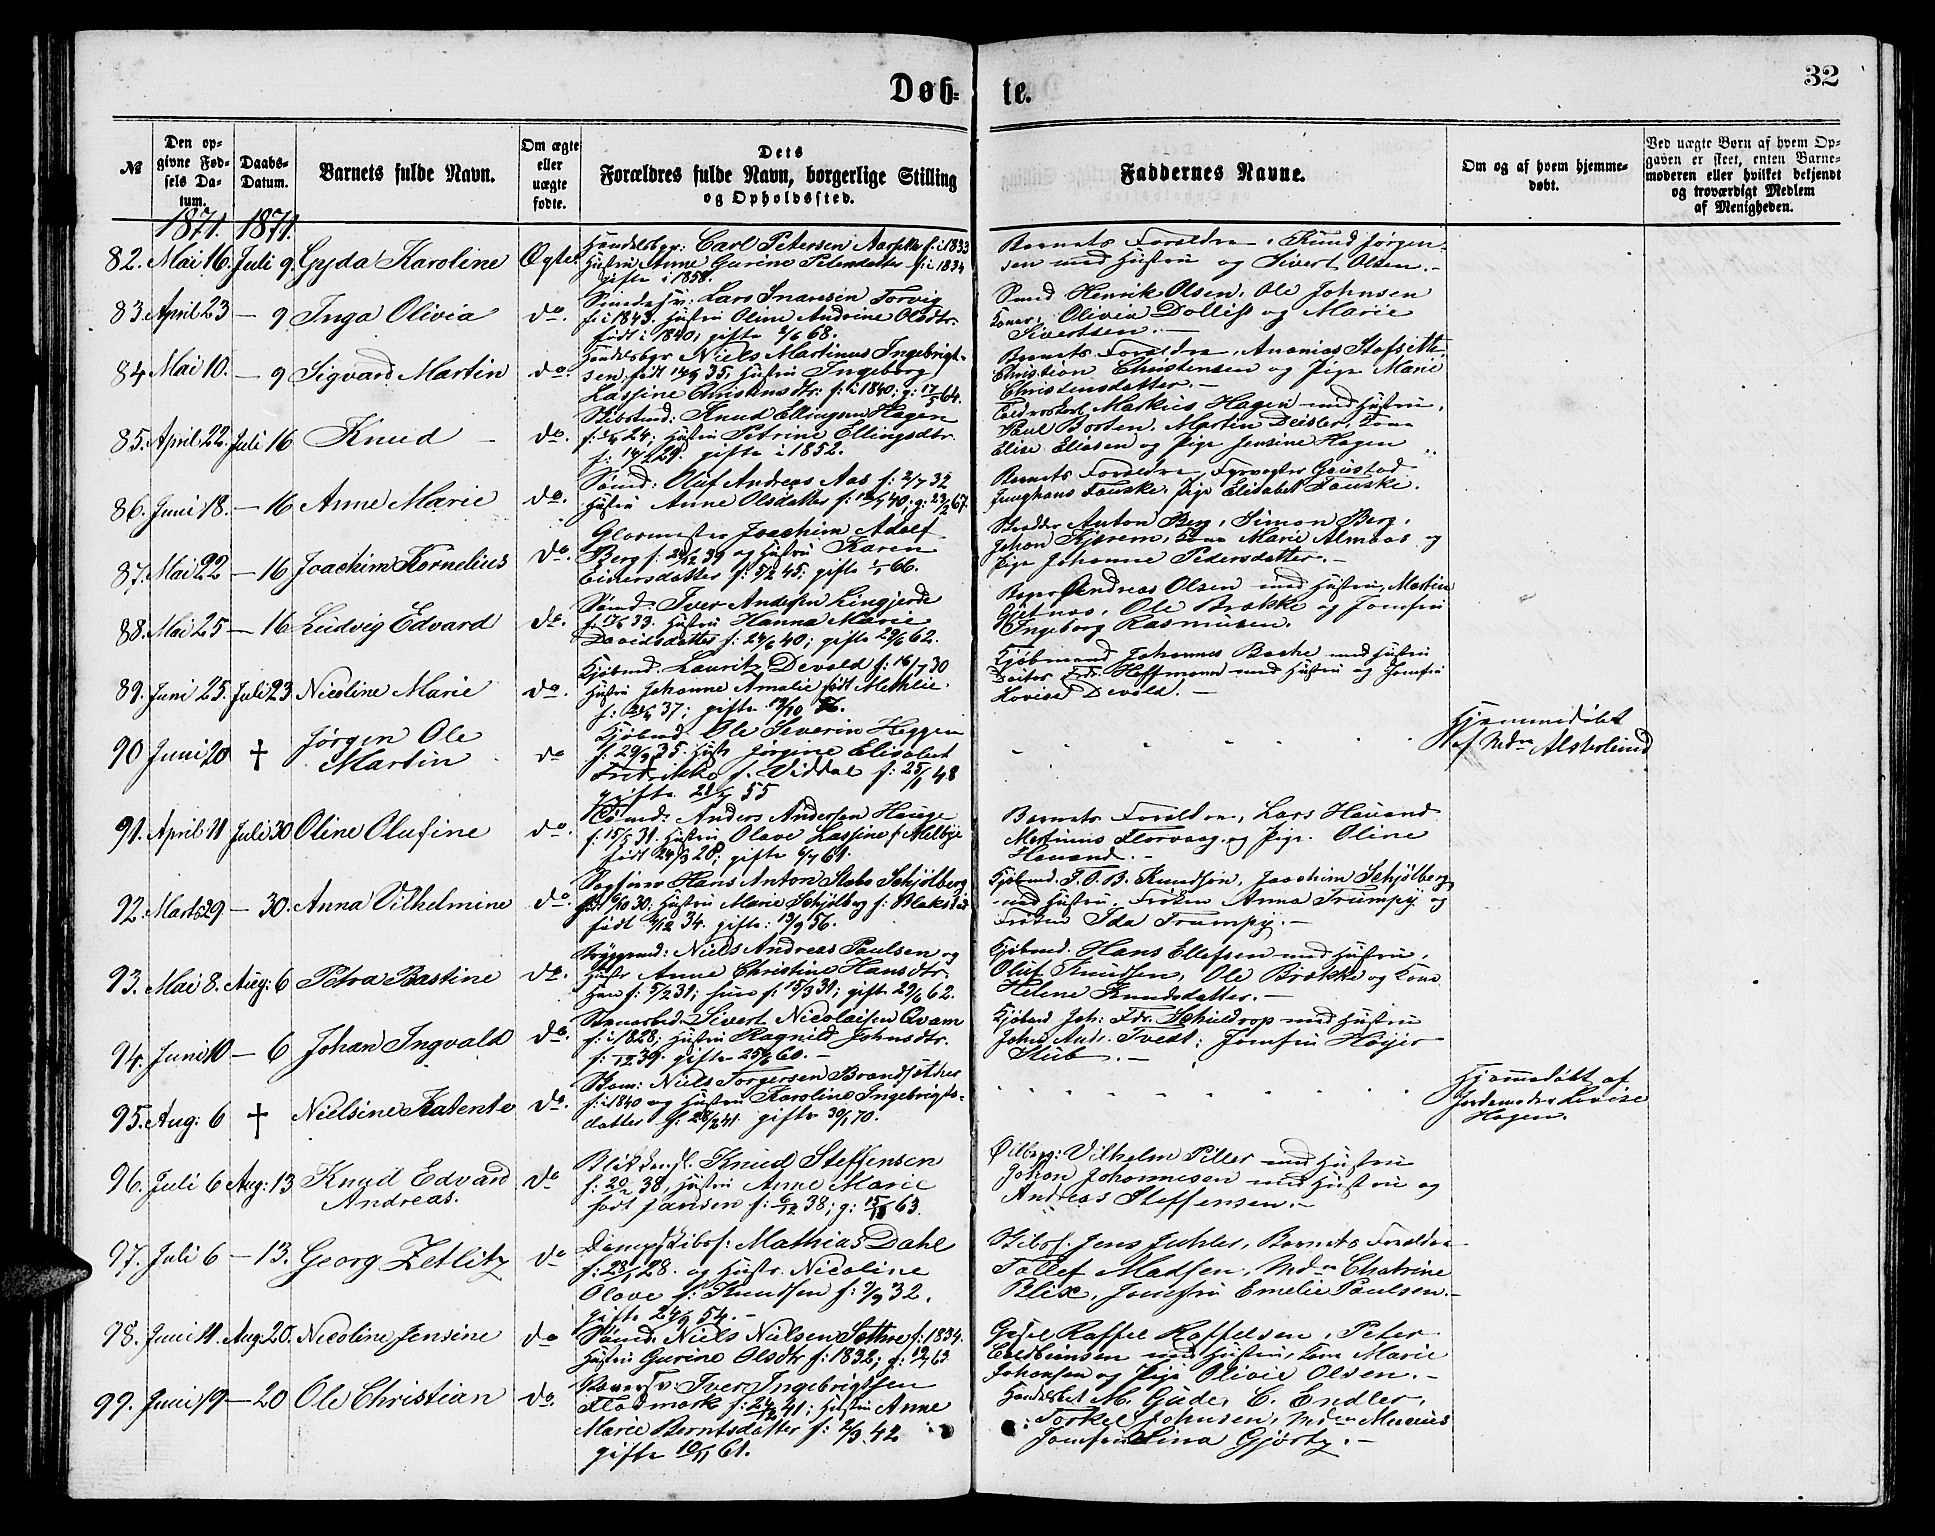 Døb- te.
32
№
Den opgivne Fødsels Datum.
Daabs-Datum.
Barnets fulde Navn.
Om ægte eller uægte fødte.
Dets Forældres fulde Navn, borgerlige Stilling og Opholdssted.
Faddernes Navne.
Om og af hvem hjemmedøbt.
Ved uægte Børn af hvem Opgaven er skeet, enten Barnemoderen eller hvilket bekjendt og troværdigt Medlem af Menigheden.
1871. 1871.
82. Mai 16. Juli 9. Gyda Karoline Ægte.
Handelsbgr: Carl Petersen f: i 1833
Hustru Anne Gurine Petersdatter f: i 1834
gifte i 1858.
Barnets Forældre, Knud Jørgen-
sen med Hustru og Sivert Olsen.-
83. April 23 — 9 Inga Olivia do.
Lars Torvig
f: i 1843. Hustru Oline Andrine Olsdtr.
født i 1840, gifte 68.
Smed Henrik Olsen, Ole Johnsen
Olivia Dollis og Marie
Sivertsen.-
84 Mai 10. — 9 Sigvard Martin do.
Handelsbgr Niels Martinus Ingebrigt-
sen født 35, Hustru Ingeborg
Lassine Christensdtr: f: i 1840; g: 17/5 64.
Barnets Forældre, Ananias
Christian Christensen og Pige Marie
Christensdatter.-
85. April 22. Juli 16 Knud — do.
Knud Ellingsen Hagen
24; Hustru Petrine Ellingsdtr.
29. gifte i 1852.
Mathias Hagen med Hustru,
Paul Borten, Martin Deisler, Kona
Elise Eliasen og Pige Jensine Hagen
86. Juni 18. — 16 Anne Marie do.
Sømd: Oluf Andreas Aas f: 2/7 32
Hustru Anne Olsdatter 40; g: 23/2 67.
Barnets Forældre, Fyrvogter
Fauske, Pige Elisabet Fauske.
87. Mai 22 — 16 Joachim Kornelius do.
Glarmester Joachim Adolf
Berg 39 og Hustru Karen
Einersdatter f: 5/2 45; gifte 66.
Anton Berg, Simon Berg,
Johan Marie Almaas og
Pige Johanne Pedersdatter.-
88. Mai 25 — 16 Ludvig Edvard do.
Sømd. Iver Andersen Lingjerde
33. Hustru Hanna Marie
Davidsdatter f: 24/6 40; gifte 29/6 62.
Bager Andreas Olsen med Hustru, Martin
Ole Brække og Jomfru
Ingeborg Rasmussen.
89. Juni 25. Juli 23. Nicoline Marie do.
Kjøbmd. Lauritz Devold f: 16/7 30
Hustru Johanne Amalie født
37; gifte
Kjøbmand Johannes Backe med Hustru
Hoffmann med Hustru og Jomfru
Lovise Devold.-
90 Juni 20 † Jørgen Ole
Martin do
Kjøbmd. Ole Severin Heggen
f. 29/9 35. Hustr Jørgine Elisabet
Fredrikke f. Viddal f: 25/ 48
gifte 55
" " " " " "
Hjemmedøbt
af Mdm
91. April 11 Juli 30 Oline Olufine do.
Sømd. Anders Andersen Hauge
f. 15/5 31. Hustru Olave Lassine f Melbye
født 24/3 28; gifte 6/7 61.
Barnets Forældre, Lars Hauand
Martinus og Pige Oline
Hauand.-
92. Marts 29 — 30. Anna Vilhelmine do.
Hans Anton Schjølberg
30. Hustru Marie Schjølberg f: Blakstad
født 34. gifte: 13/9 56.
Kjøbmd. T. O. B. Knudsøn, Joachim Schjølberg
med Hustru, Frøken Anna Trumpy og
Frøken Ida Trumpy.-
93. Mai 8. Aug: 6 Petra Bastine do.
Niels Andreas Paulsen og
Hustr Anne Christine Hansdtr.
Han f: 5/2 31; hun f: 15/3 31; gifte 29/6 62.
Kjøbmd. Hans Ellefsen med Hustru,
Oluf Knudsen, Ole Brække og Kona
Helene Knudsdatter.-
94. Juni 10 — 6 Johan Ingvald do.
Stenarbeid. Sivert Nicolaisen Qvam
f: i 1828; Hustru Ragnild Johnsdtr.
39. gifte 60.-
Kjøbmd Joh: Fdr. Schieldrop med Hustru
John Andr. Tvedt; Jomfru Høyer
Stub.-
95. Aug: 6 † Nielsine do.
Skom: Niels Torgersen
f: i 1840 og Hustru Karoline Ingebrigts-
datter f: 28/2 41. gifte 30/ 70.
" " " " " "
Hjemmedøbt af
Jordemoder Lovise
Hagen.
96. Juli 6 Aug: 13 Knud Edvard
Andreas. do
Knud Steffensen
38, Hustru Anne Marie
født Jansen f: 6/12 38; g: 63.
Vilhelm Piller med Hustru
Johan Johannesen med Hustru og
Andreas Steffensen.-
97. Juli 6 — 13. Georg Zetlitz do
Dampskibsf: Mathias Dahl
28. og Hustr. Nicoline
Olave f: Knudsen f: 9/9 32.
gifte 54.-
Skibsf. Jens Juhler, Barnets Forældre
Tollef Madsen, Mdm Chatrine
Blix, Jomfru Emelie Paulsen.-
98. Juni 11. Aug 20. Nicoline Jensine do
Sømd. Niels Nielsen f: 1834.
Hustru Gurine Olsdtr f: 1832; 63.
Raffel Raffelsen, Peter
med Hustru, Kona Marie
Johansen og Pige Olivie Olsen.-
99. Juni 19 — 20 Ole Christian do.
Iver Ingebrigtsen
Flodmark 41; Hustru Anne
Marie Berntsdatter f: 2/9 42
gifte 61.
M. Gude, C. Endler,
Torkel Johnsen, Mdm
Jomfru Lina Gjørtz.-